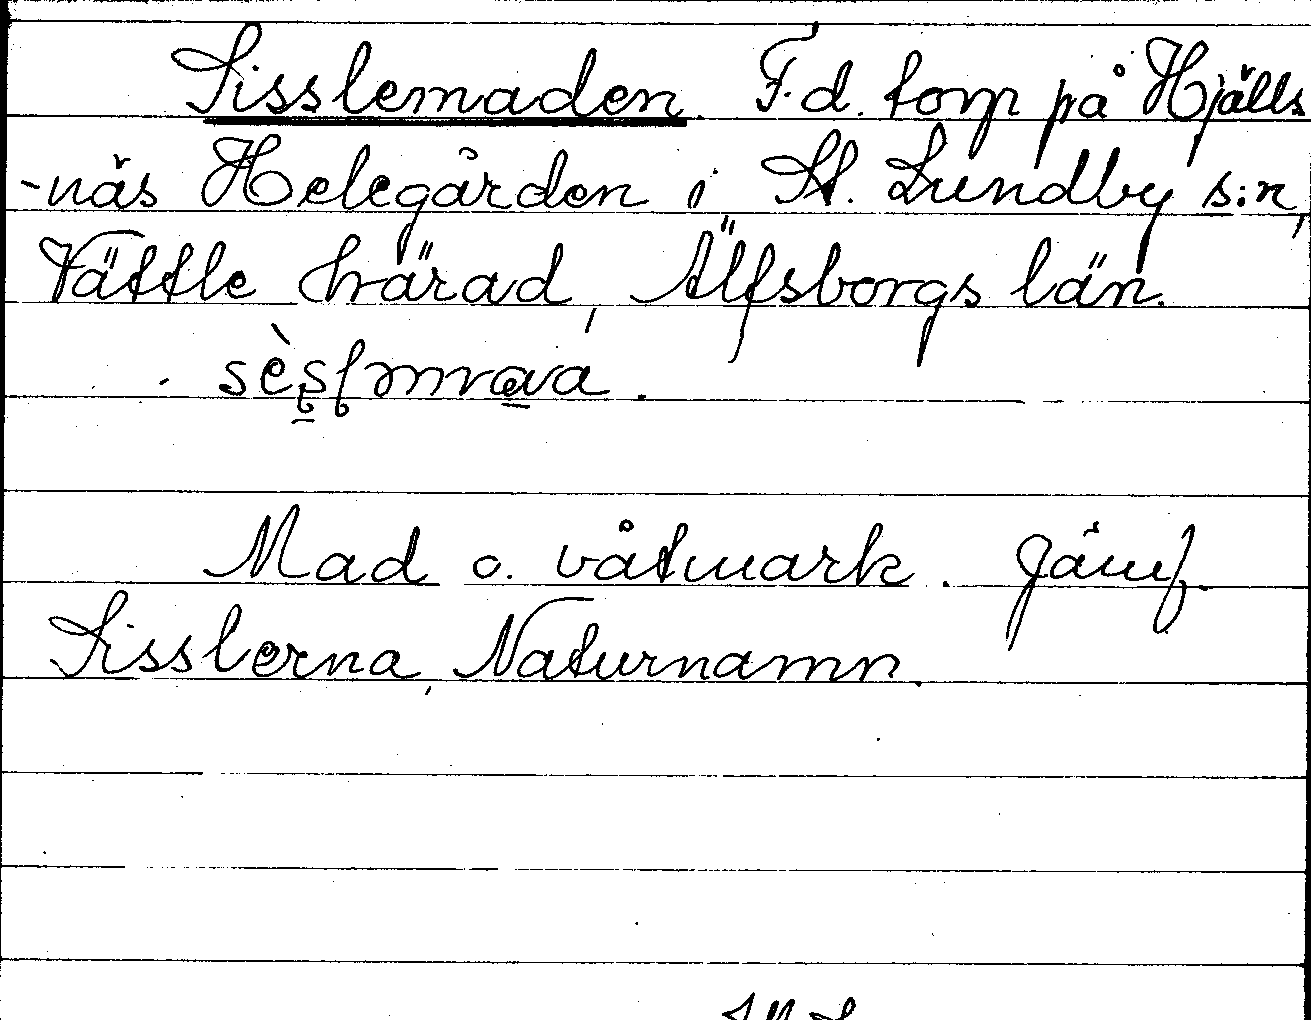 Sisslemaden. F.d. torp på Hjälls
-näs Helegården i St. Lundby s:n,
Vättle härad, Älfsborgs län.
Mad o. våtmark. Jämf.
Sisslerna, Naturnamn.